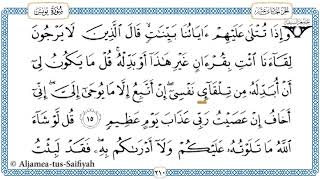 الجزء الحادي عشر سورة يونس
وَإِذَا تُتْلَىٰ عَلَيْهِمْ ءَايَاتُنَا بَيِّنَٰتٍ قَالَ ٱلَّذِينَ لَا يَرْجُونَ
لِقَآءَنَا ٱئْتِ بِقُرْءَانٍ غَيْرِ هَٰذَآ أَوْ بَدِّلْهُ ۚ قُلْ مَا يَكُونُ لِىٓ
أَنْ أُبَدِّلَهُۥ مِن تِلْقَآئِ نَفْسِىٓ ۖ إِنْ أَتَّبِعُ إِلَّا مَا يُوحَىٰٓ إِلَىَّ ۖ إِنِّىٓ
أَخَافُ إِنْ عَصَيْتُ رَبِّى عَذَابَ يَوْمٍ عَظِيمٍ ١٥ قُل لَّوْ شَآءَ
ٱللَّهُ مَا تَلَوْتُهُۥ عَلَيْكُمْ وَلَآ أَدْرَىٰكُم بِهِۦ ۖ فَقَدْ لَبِثْتُ
© Aljamea-tus-Saifiyah ٢١٠